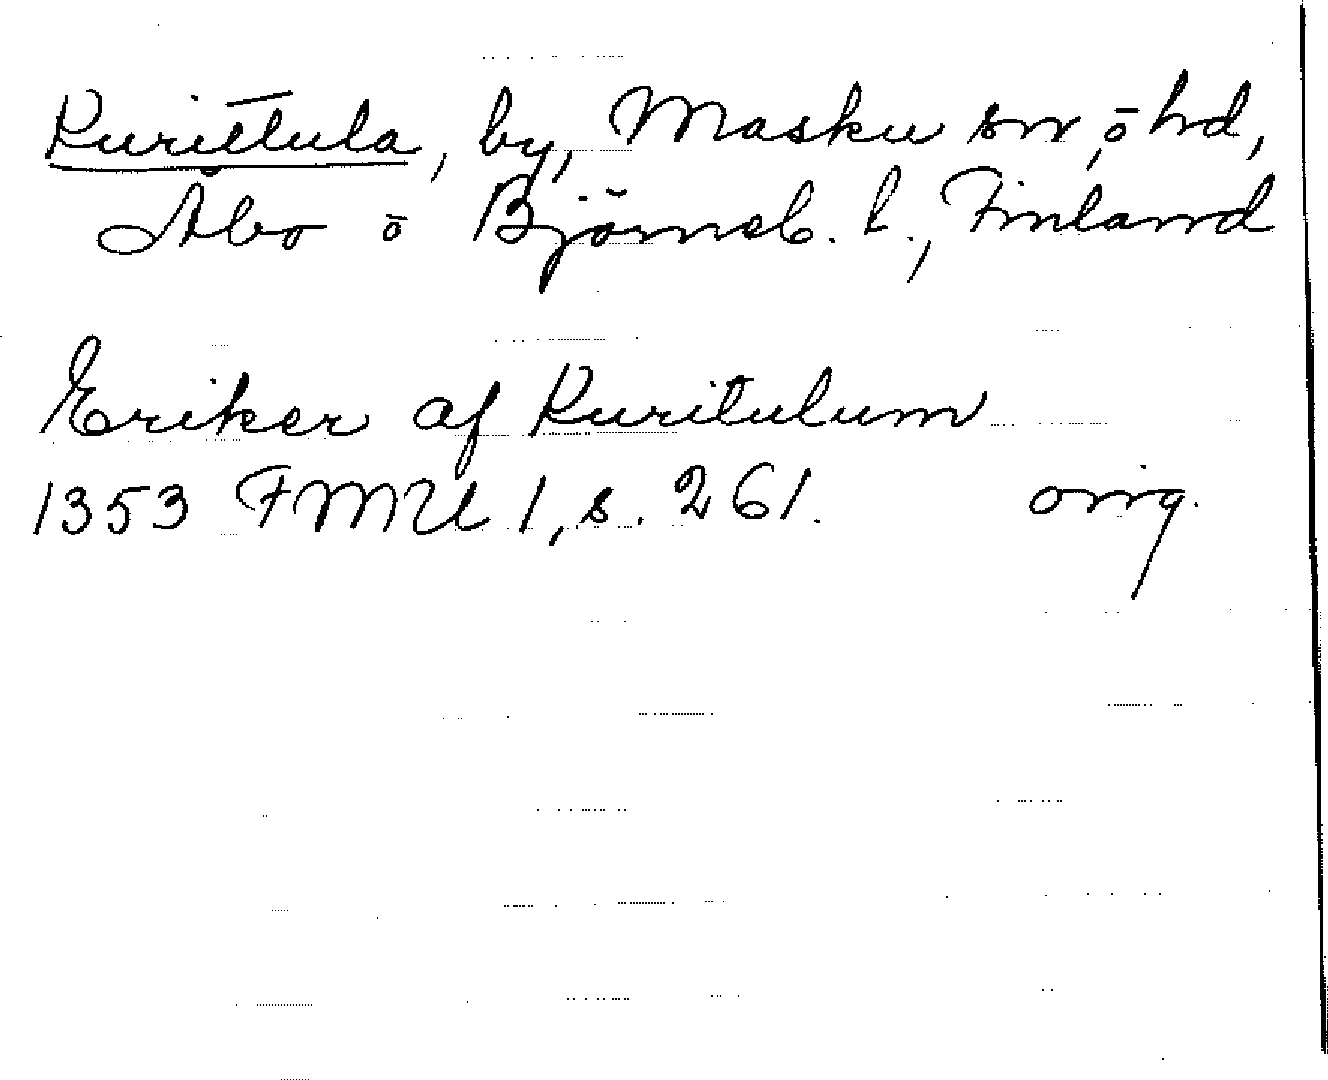 Kurittula, by, Masku sn, o hd,
Åbo o Björneb. l., Finland
Eriker af Kuritulum
1353 FMU 1, s. 261. orig.